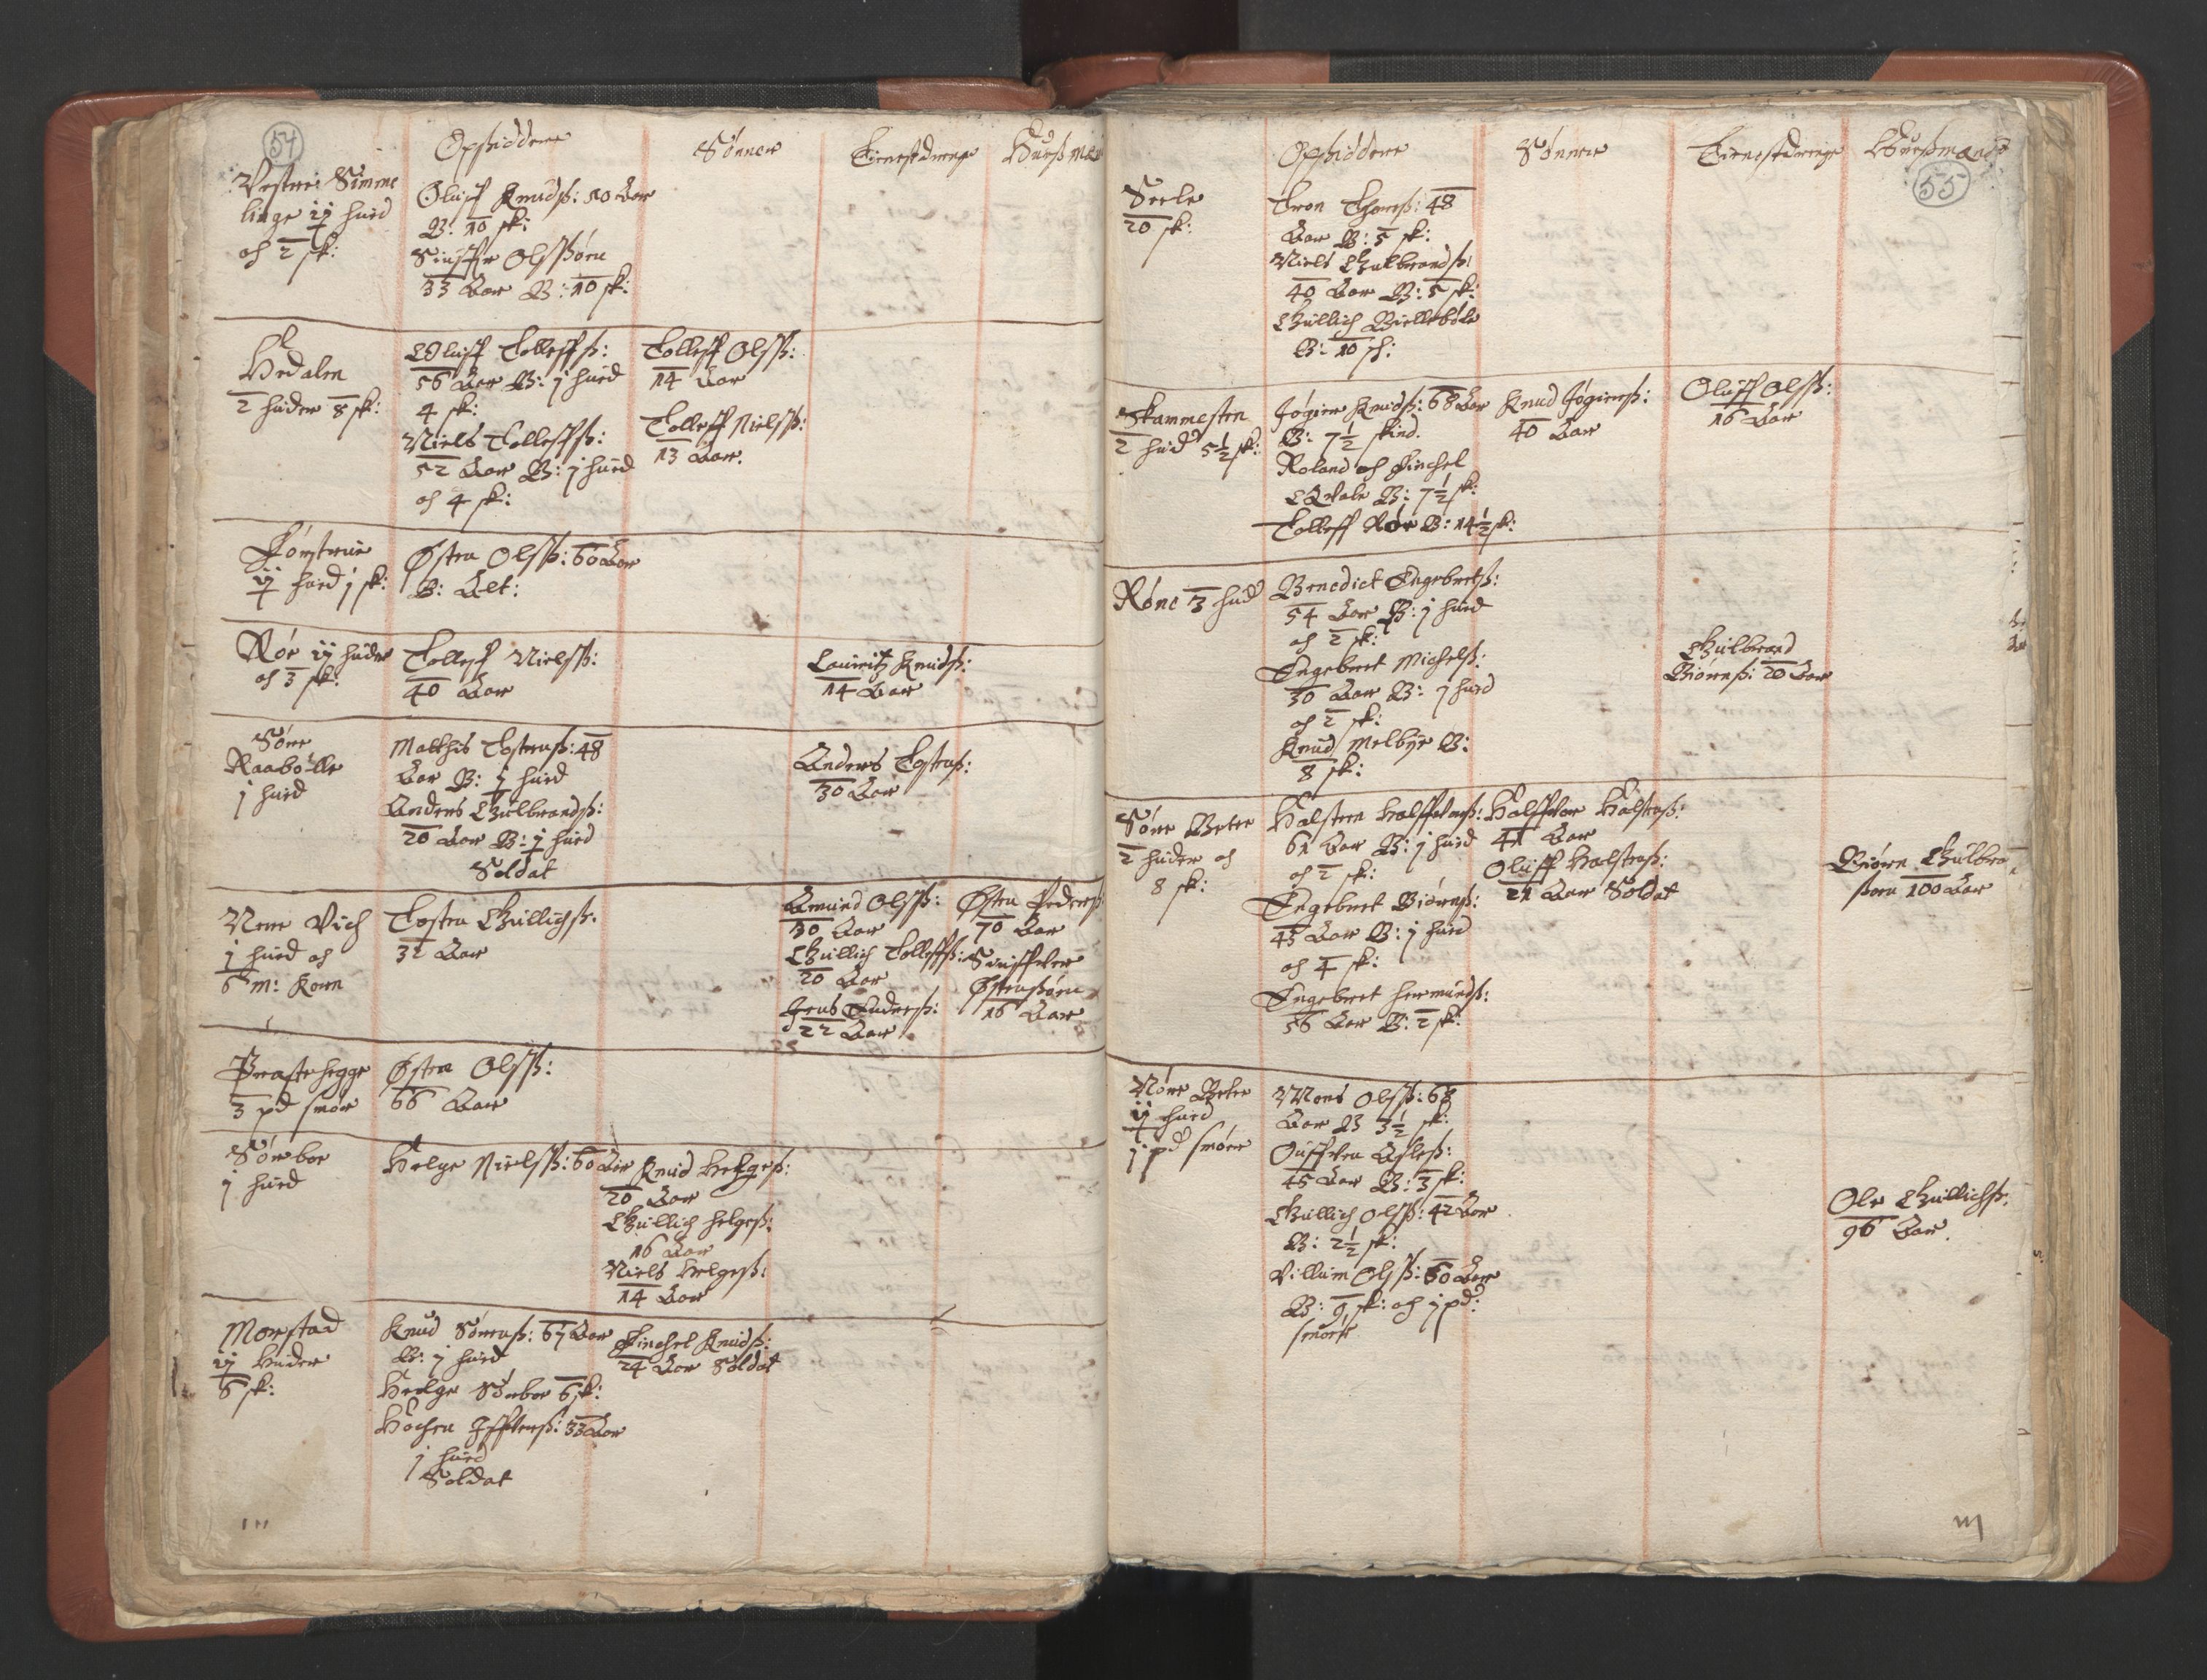 54
Opsiddere Sønner Tienestdrenge Huusmænd
Vestre Simme
linge ij hud
och 2 sk:
Oluff Knudß: 10 Aar
B: 10 sk:
Siuffr Olsßøen
33 Aar B: 10 sk:
Hedalen
2 huder 8 sk:
Oluff Tolleffß:
56 Aar B: j hud
4 sk:
Niels Tolleffß:
52 Aar B: j hud
och 4 sk:
Tolleff Olsß:
14 Aar
Tolleff Nielsß:
13 Aar.
ij hud j sk:
Østen Olsß: 60 Aar
B: Alt:
Rør ij huder
och 3 sk:
Tolleff Nielsß:
40 Aar
Lauritz Knudß:
14 Aar
Søre
Raabølle
j hud
Matthis Tostenß: 48
Aar B: j hud
Anders Gulbrandß:
20 Aar B: j hud
Soldat
Anders Tostenß:
30 Aar
Nere Vich
j hud och
6 m: Korn
Tosten Gullichß:
32 Aar
Amund Olsß:
30 Aar
Gullich Tolleffß:
20 Aar
Jens Enderß:
22 Aar
Østen Pederß:
70 Aar
Siuffuer
Østenßøen
16 Aar
Præstehegge
3 pd smør
Østen Olsß:
66 Aar
Sørboe
j hud
Helge Nielsß: 60 Aar
Knud Helgeß:
20 Aar
Gullich Helgeß:
16 Aar
Niels Helgeß:
14 Aar
Morstad
ij huder
6 sk:
Knud Sørenß: 67 Aar
B: j hud
Helge Sørboe 6 sk:
Hochen Iffuerß: 33 Aar
j hud
Soldat
Tinchel Knudß:
24 Aar Soldat
55
Opsiddere Sønner Tienestdrenge Huusmænd
Seele
20 sk:
Tron Thomß: 48
Aar B: 5 sk:
Niels Gulbrandß:
40 Aar B: 5 sk:
Gullich Biellbøle
B: 10 sk:
Skammesten
2 hud 5½ sk:
Jøgien Knudß: 68 Aar
B: 7½ skind.
Roland och Tinchel
Qvale B: 7½ sk:
Tolleff Rør B: 14½ sk:
Knud Jøgienß:
40 Aar
Oluff Olsß:
16 Aar
Røne 3 hud
Benedict Engebretß:
54 Aar B: j hud
och 2 sk:
Engebret Michelß:
30 Aar B: j hud
och 2 sk:
Knud Melbye B:
8 sk:
Gulbrand
Biørnß: 20 Aar
Søre Beten
2 huder och
8 sk:
Halsten Halffuorß:
61 Aar B: j hud
och 2 sk:
Engebret Biørnß:
45 Aar B: j hud
och 4 sk:
Engebret Hermundß:
56 Aar B: 2 sk:
Halffuor Halstenß:
41 Aar
Oluff Halstenß:
21 Aar Soldat
Biørn Gulbran
ßøen 100 Aar
Nøre Beten
ij hud
j pd smør
Mons Olsß: 68
Aar B 3½ sk:
Asleß:
45 Aar B: 3 sk:
Gullich Olsß: 42 Aar
B: 2½ sk:
Villum Olsß: 50 Aar
B: 9 sk: och j pd:
smør
Ole Gullichß:
96 Aar.